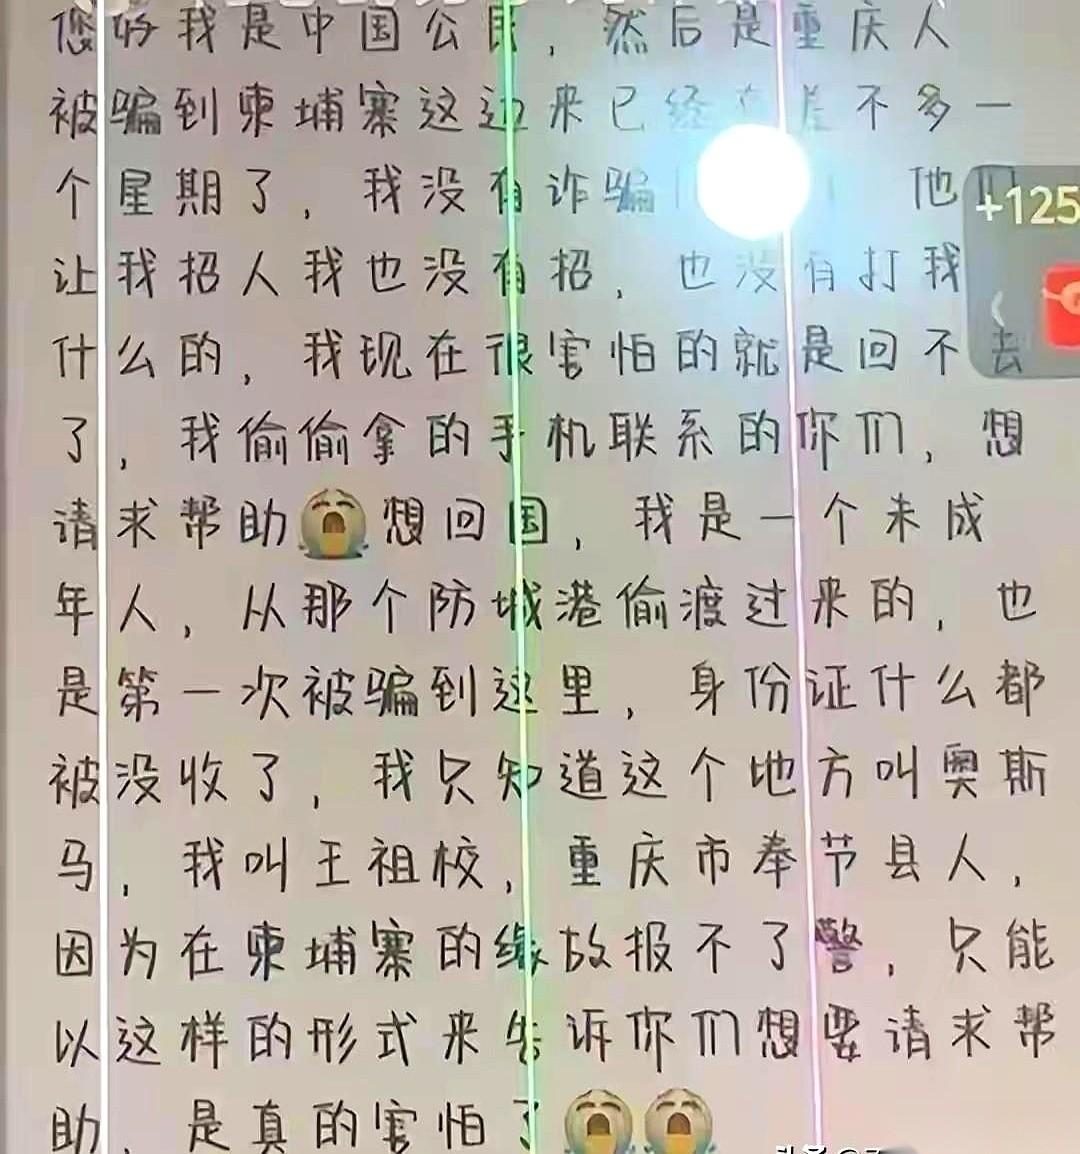 您好我是中国公民，然后是重庆人
被骗到柬埔寨这边来已经 差不多一
个星期了，我没有诈骗 他们
+125
让我招人我也没有招，也没有打我
什么的，我现在很害怕的就是回不去
了，我偷偷拿的手机联系的你们，想
请求帮助😭想回国，我是一个未成
年人，从那个防城港偷渡过来的，也
是第一次被骗到这里，身份证什么都
被没收了，我只知道这个地方叫奥斯
马，我叫王祖校，重庆市奉节县人，
因为在柬埔寨的缘故报不了警，只能
以这样的形式来告诉你们想要请求帮
助，是真的害怕了😭😭